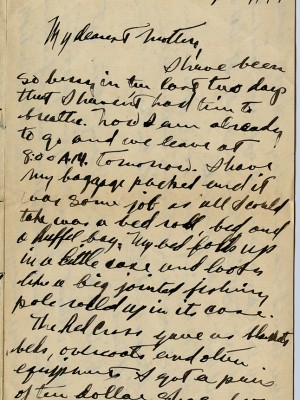 My dearest Mother,
I have been
so busy in the last two days
that I haven't had time to
breathe. Now I am already
to go and we leave at
8:00 A.M. tomorrow. I have
my baggage packed and it
was some job as all I could
take was a bed roll, bag and
a duffel bag. My bed folds up
in a little case and looks
like a big jointed fishing
pole rolled up in its case.
The Red Cross gave us blankets
beds, overcoats and other
equipment. I got a pair
of ten dollar